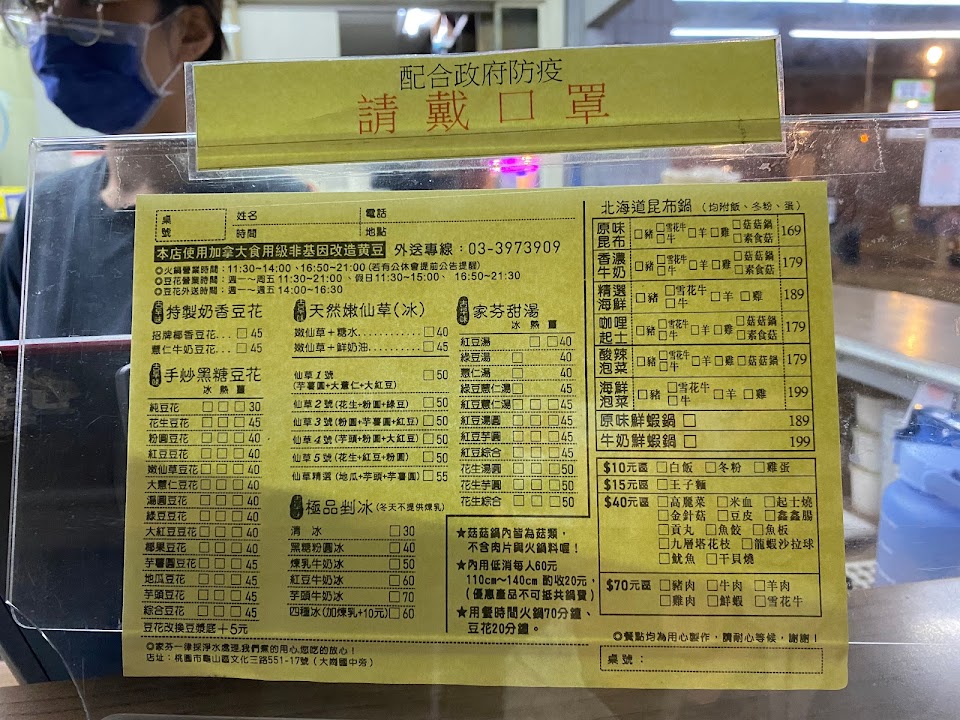 配合政府防疫
請戴口罩
桌號
姓名
電話
時間
地點
本店使用加拿大食用級非基因改造黃豆 外送專線：03-3973909
◎火鍋營業時間：11:30~14:00、16:50~21:00 (若有公休會提前公告提醒)
◎豆花營業時間：週一～周五 11:30~21:00、假日11:30~15:00、16:50~21:30
◎豆花外送時間：週一～週五 14:00~16:30
古早味 特製奶香豆花
招牌椰香豆花... □ 45
薏仁牛奶豆花... □ 45
古早味 手炒黑糖豆花
冰 熱 薑
純豆花 □□□ 30
花生豆花 □□□ 45
粉圓豆花 □□□ 40
紅豆豆花 □□□ 40
嫩仙草豆花 □□□ 40
大薏仁豆花 □□□ 40
湯圓豆花 □□□ 40
綠豆豆花 □□□ 40
大紅豆豆花 □□□ 40
椰果豆花 □□□ 40
芋薯圓豆花 □□□ 45
地瓜豆花 □□□ 45
芋頭豆花 □□□ 45
綜合豆花 □□□ 45
豆花改換豆漿底＋5元
古早味 天然嫩仙草(冰)
嫩仙草＋糖水........ □ 40
嫩仙草＋鮮奶油...... □ 45
仙草1號 □ 50
(芋薯圓+大薏仁+大紅豆)
仙草2號 (花生+粉圓+綠豆) □ 50
仙草3號 (粉圓+芋薯圓+紅豆) □ 50
仙草4號 (芋頭+粉圓+大紅豆) □ 50
仙草5號 (花生+紅豆+粉圓) □ 50
仙草精選 (地瓜+芋頭+芋薯圓) □ 55
古早味 極品剉冰 (冬天不提供煉乳)
清 冰 □ 30
黑糖粉圓冰 □ 40
煉乳牛奶冰 □ 50
紅豆牛奶冰 □ 60
芋頭牛奶冰 □ 70
四種冰(加煉乳+10元) □ 60
古早味 家芬甜湯
冰 熱 薑
紅豆湯 □□ 40
綠豆湯 □ 40
薏仁湯 □ 40
綠豆薏仁湯 □ 45
紅豆薏仁湯 □□ 45
紅豆湯圓 □□ 45
紅豆芋圓 □□ 45
紅豆綜合 □□ 45
花生湯圓 □□ 50
花生芋圓 □□ 50
花生綜合 □□ 50
★菇菇鍋內皆為菇類，
不含肉片與火鍋料喔！
★內用低消每人60元
110cm～140cm 酌收20元，
(優惠產品不可抵共鍋費)
★用餐時間火鍋70分鐘、
豆花20分鐘。
北海道昆布鍋 (均附飯、冬粉、蛋)
原味昆布 □豬 □雪花牛 □牛 □羊 □雞 □菇菇鍋 □素食菇 169
香濃牛奶 □豬 □雪花牛 □牛 □羊 □雞 □菇菇鍋 □素食菇 179
精選海鮮 □豬 □雪花牛 □牛 □羊 □雞 189
咖哩起士 □豬 □雪花牛 □牛 □羊 □雞 □菇菇鍋 □素食菇 189
酸辣泡菜 □豬 □雪花牛 □牛 □羊 □雞 □菇菇鍋 179
海鮮泡菜 □豬 □雪花牛 □牛 □羊 □雞 199
原味鮮蝦鍋 □ 189
牛奶鮮蝦鍋 □ 199
$10元區 □白飯 □冬粉 □雞蛋
$15元區 □王子麵
$40元區 □高麗菜 □米血 □起士燒
□金針菇 □豆皮 □鑫鑫腸
□貢丸 □魚餃 □魚板
□九層塔花枝 □龍蝦沙拉球
□魷魚 □干貝燒
$70元區 □豬肉 □牛肉 □羊肉
□雞肉 □鮮蝦 □雪花牛
◎餐點均為用心製作，請耐心等候，謝謝！
桌號：
◎家芬一律採淨水處理,我們煮的用心,您吃的放心！
店址：桃園市龜山區文化三路551-17號 (大崗國中旁)